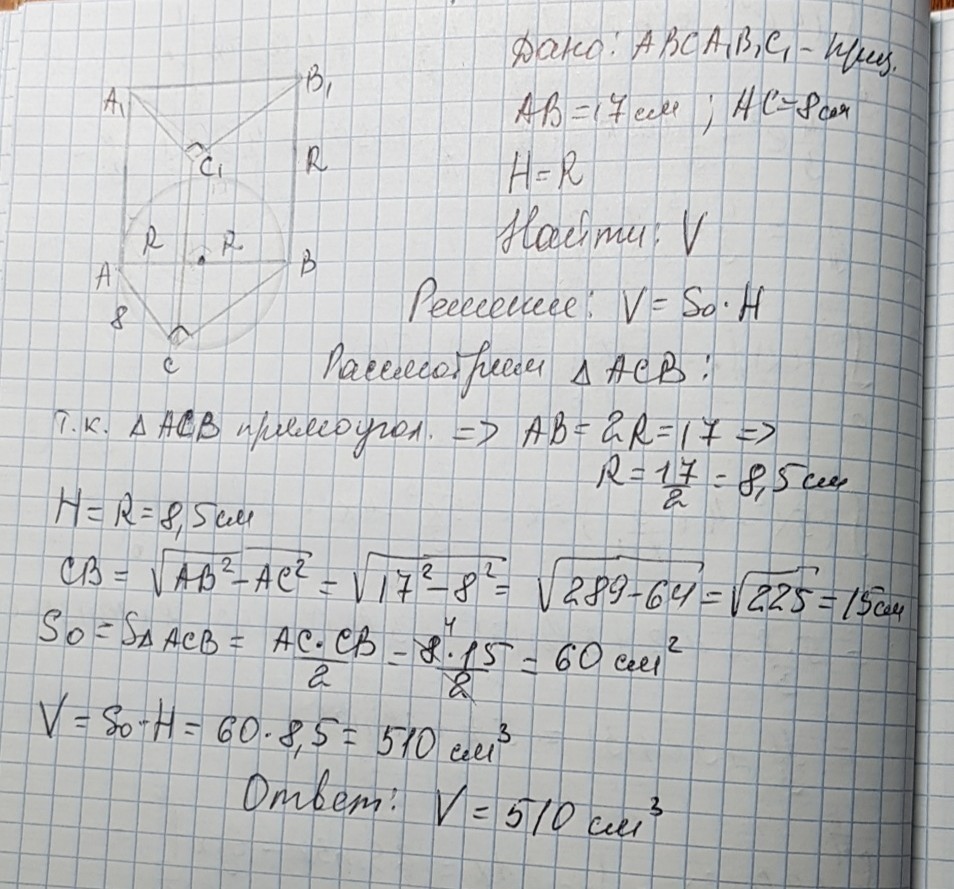 Дано: ABCA₁B₁C₁ - приз.
AB = 17 см ; AC = 8 см
H = R
Найти: V
Решение: V = So · H
Рассмотрим △ ACB :
т.к. △ ACB прямоугол. => AB = 2R = 17 =>
R = 17/2 = 8,5 см
H = R = 8,5 см
CB = √AB² - AC² = √17² - 8² = √289 - 64 = √225 = 15 см
So = S△ ACB = AC · CB/2 = 8 · 15/2 4 = 60 см²
V = So · H = 60 · 8,5 = 510 см³
Ответ: V = 510 см³
A₁
B₁
C₁
R
R
R
A
B
8
C